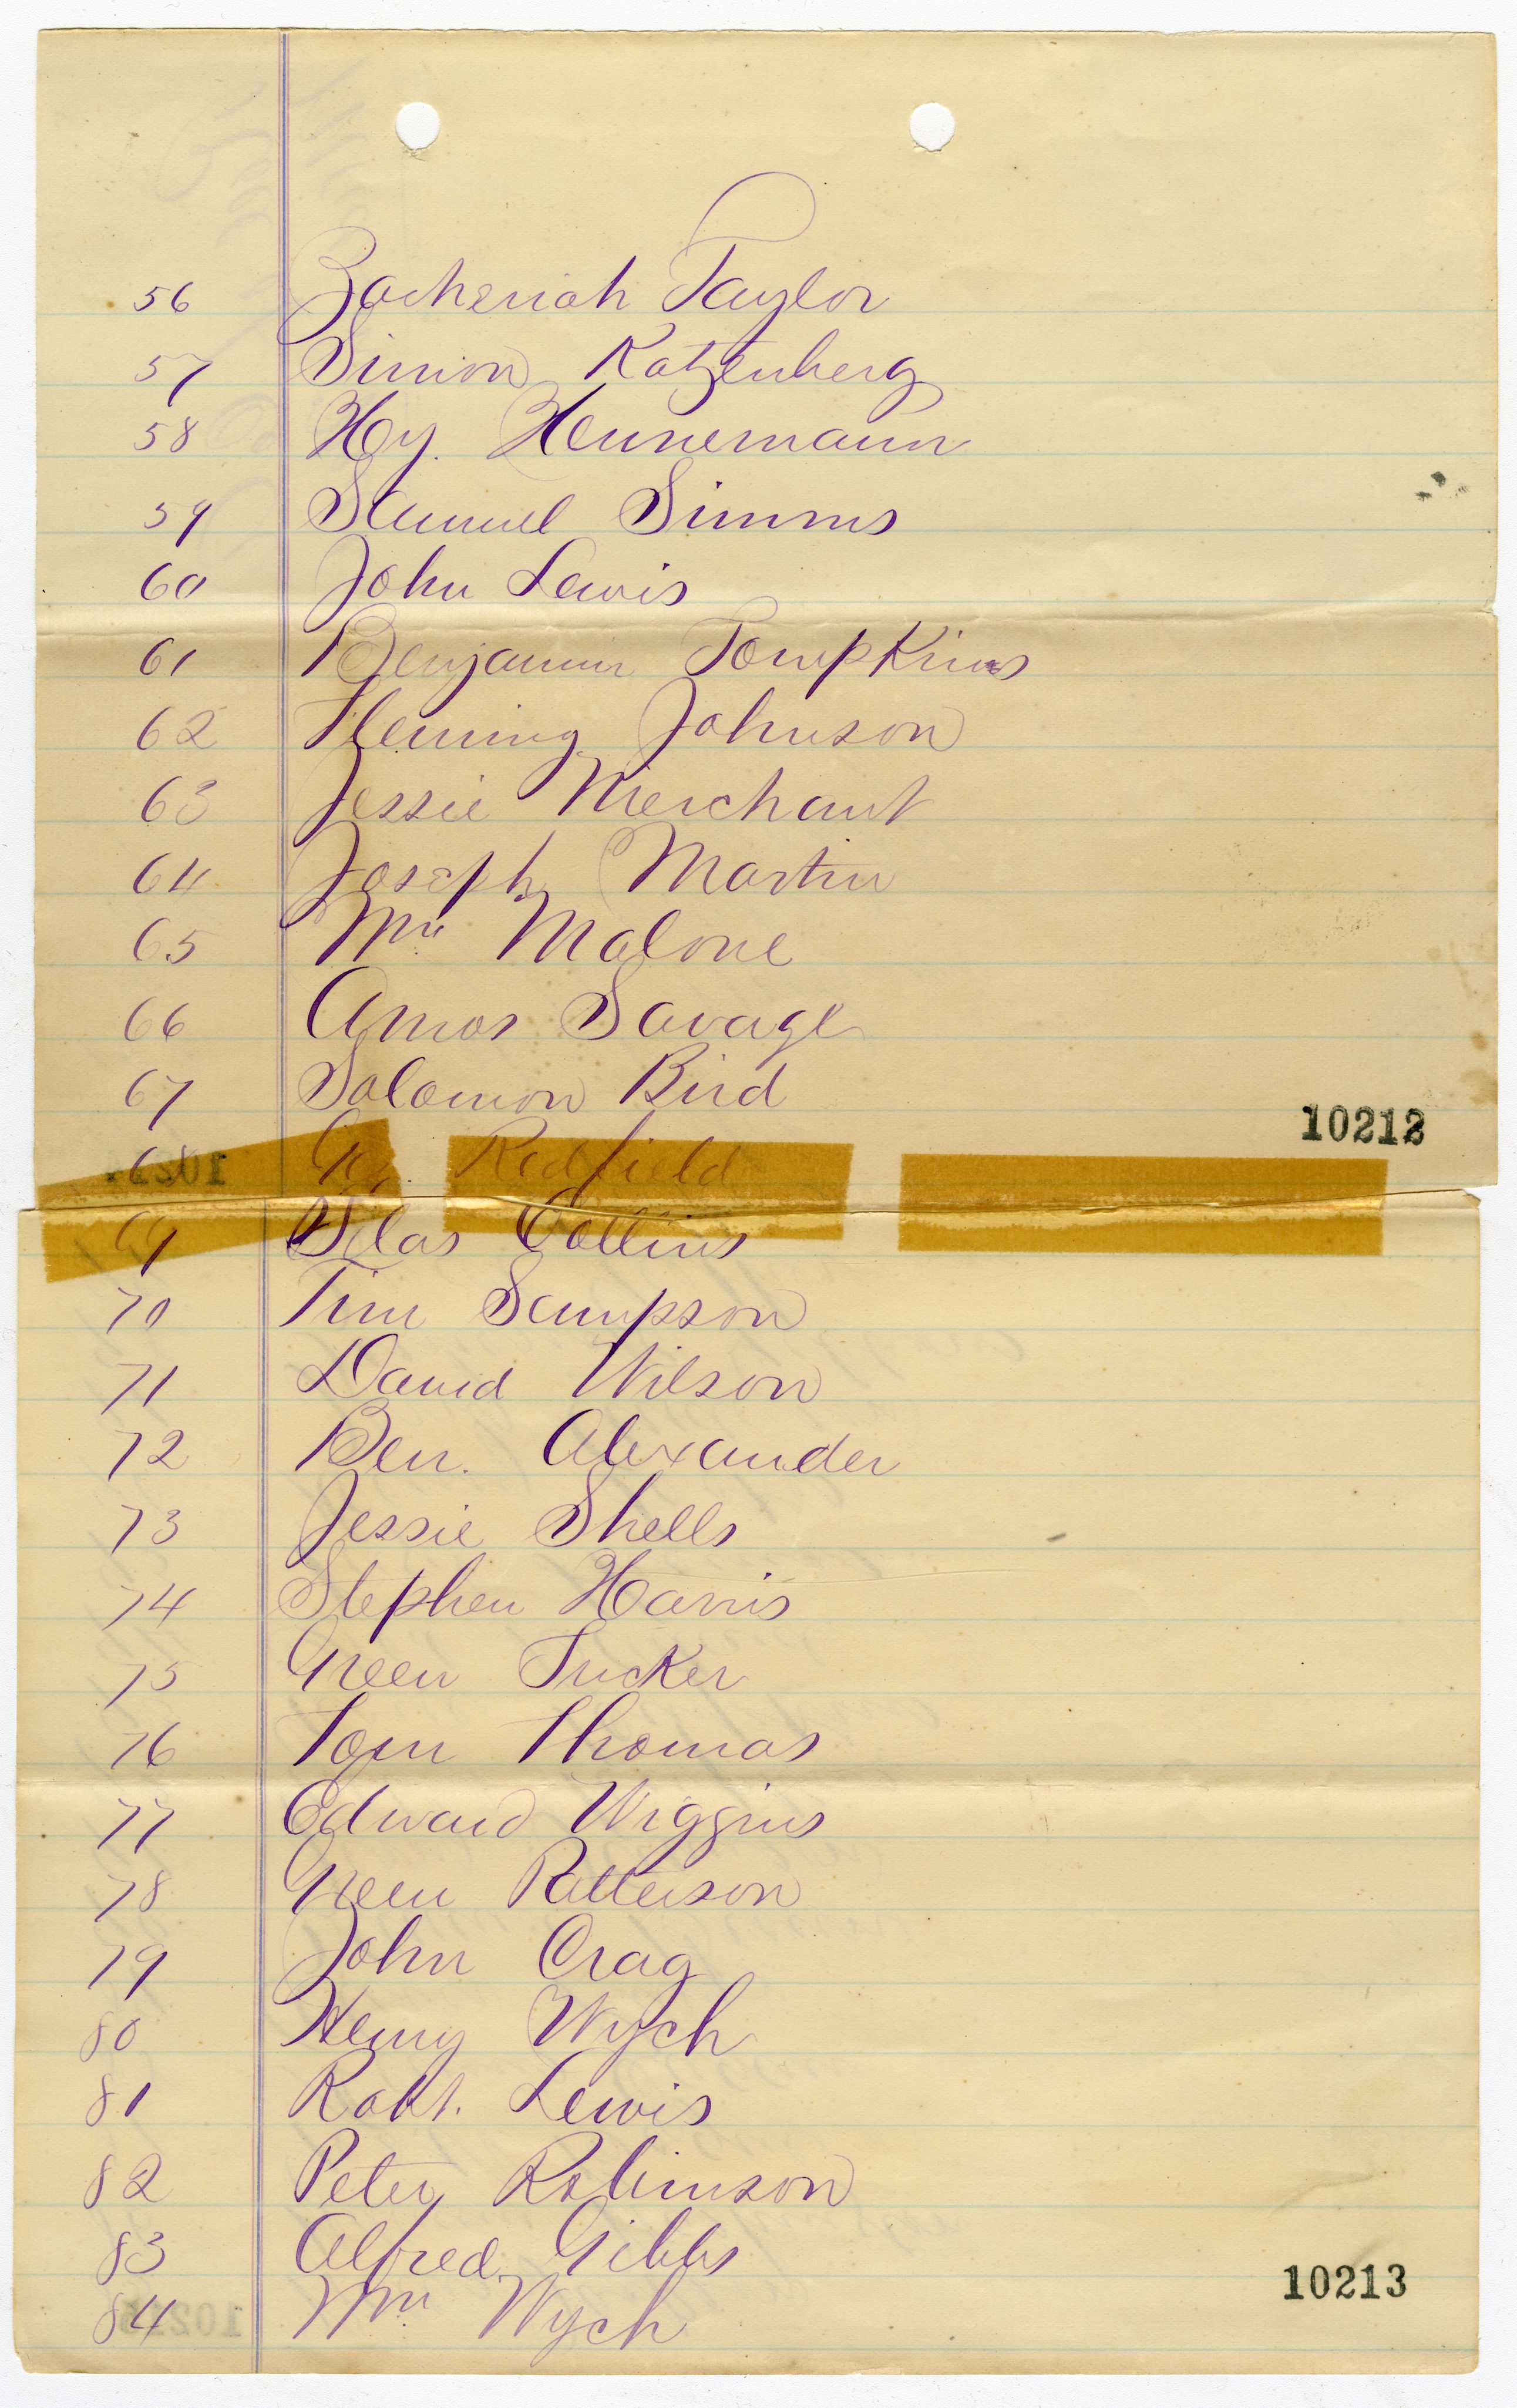 56 Zacheriah Taylor
57 Simon Katzenberg
58 Hy. Hennemann
59 Samuel Simms
60 John Lewis
61 Benjamin Tompkins
62 Fleming Johnson
63 Jessie Merchant
64 Joseph Martin
65 Wm Malone
66 Amos Savage
67 Solomon Bird
10212
68 Geo. Redfield
69 Silas Collins
70 Tim Sampson
71 David Wilson
72 Ben. Alexander
73 Jessie Shells
74 Stephen Harris
75 Green Tucker
76 Tom Thomas
77 Edward Wiggins
78 Green Patterson
79 John Crag
80 Henry Wych
81 Robt. Lewis
82 Peter Robinson
83 Alfred Gibbs
10213
84 Wm Wych